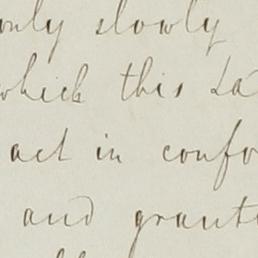 only slowly
which this La
act in confo
and grant